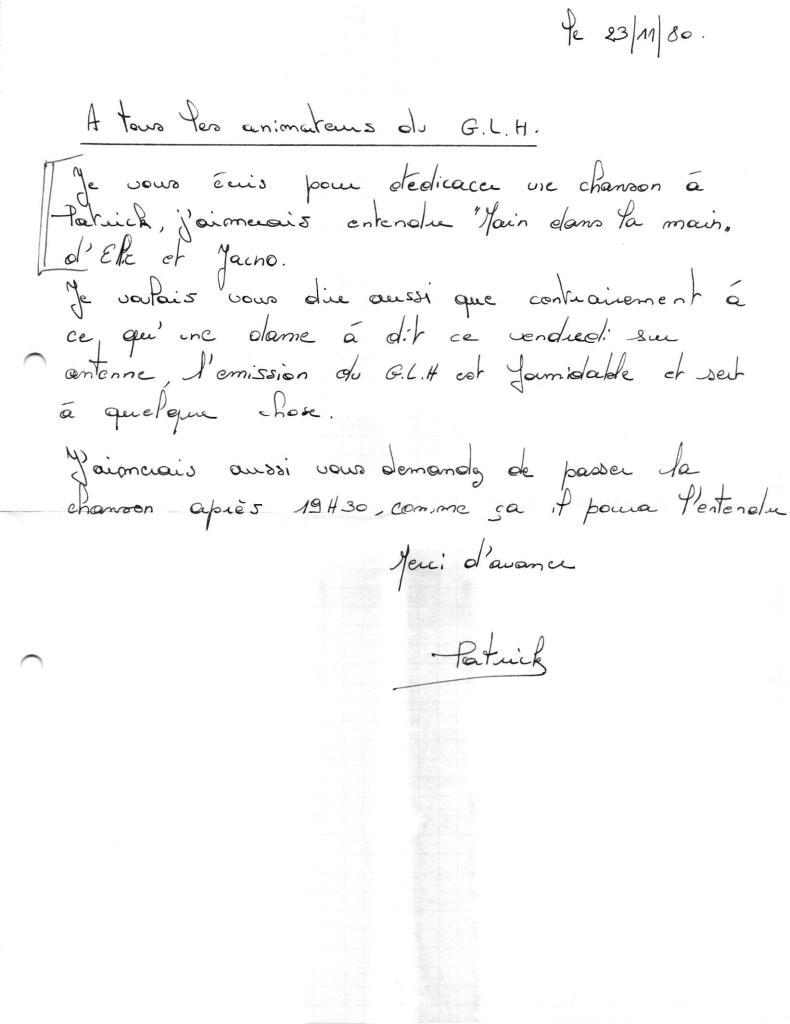 le 23/11/80.
A tous les animateurs du G.L.H.
Je vous écris pour dédicacer une chanson à
Patrick, j'aimerais entendre "Main dans la main"
d'Elli et Jacno.
Je voulais vous dire aussi que contrairement à
ce qu'une dame à dit ce vendredi sur
antenne, l'emission du G.L.H est formidable et sert
à quelque chose.
J'aimerais aussi vous demander de passer la
chanson après 19H30, comme ça il pourra l'entendre
Merci d'avance
Patrick